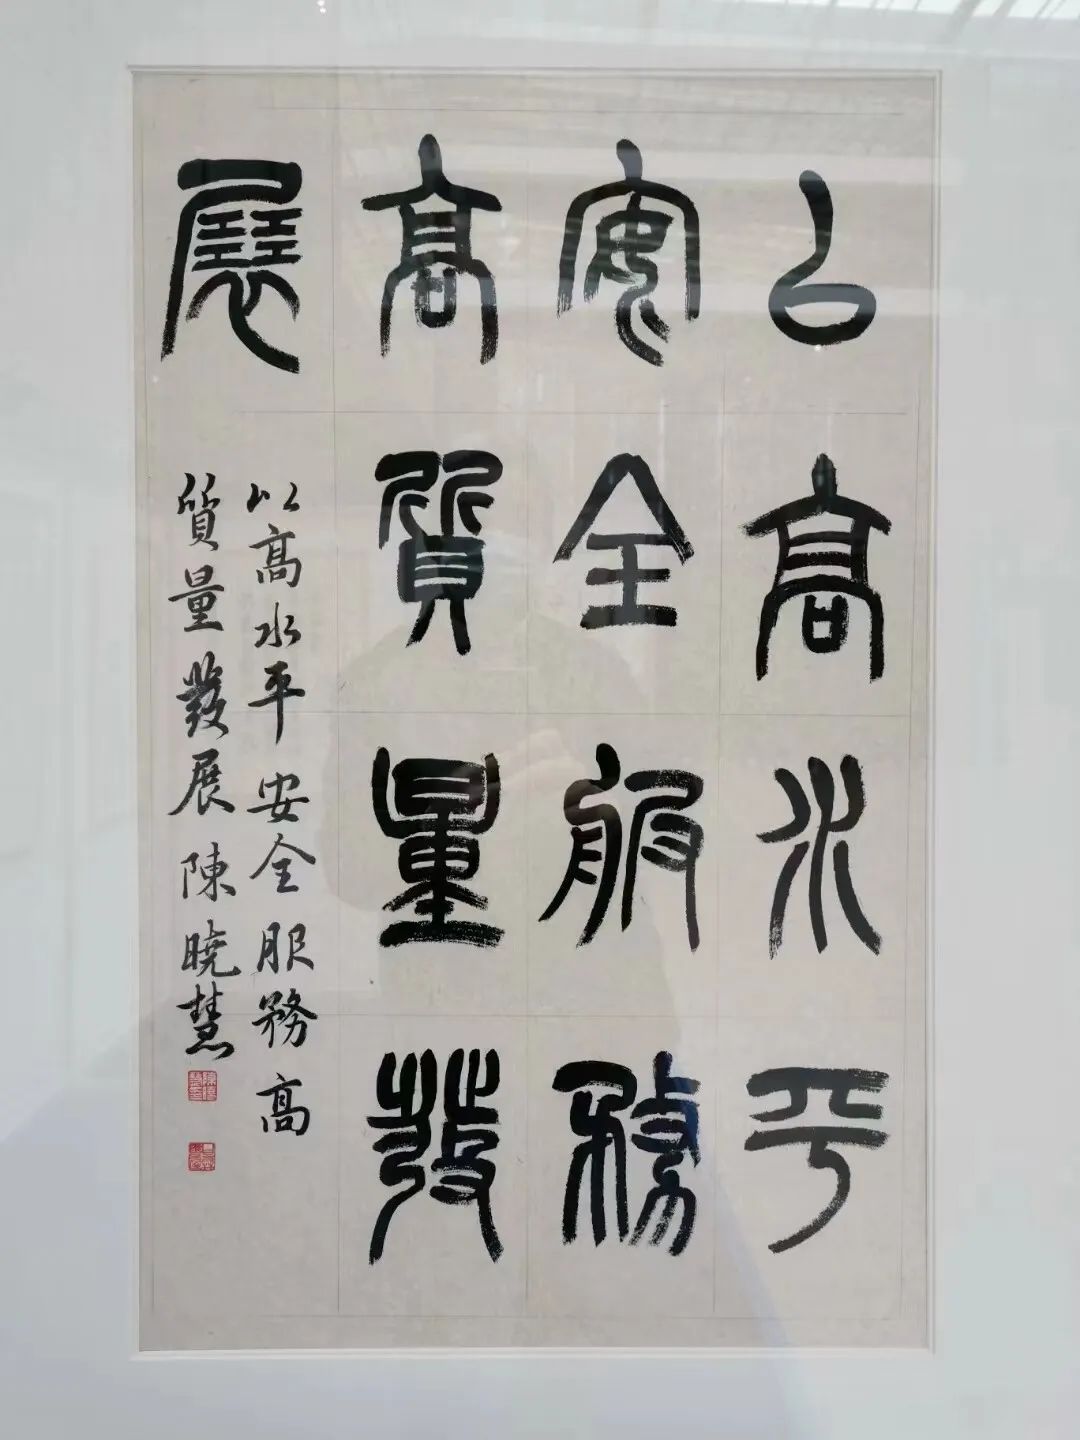 以高水平
安全服務
高質量發
展
以高水平安全服務高
質量發展陳曉慧